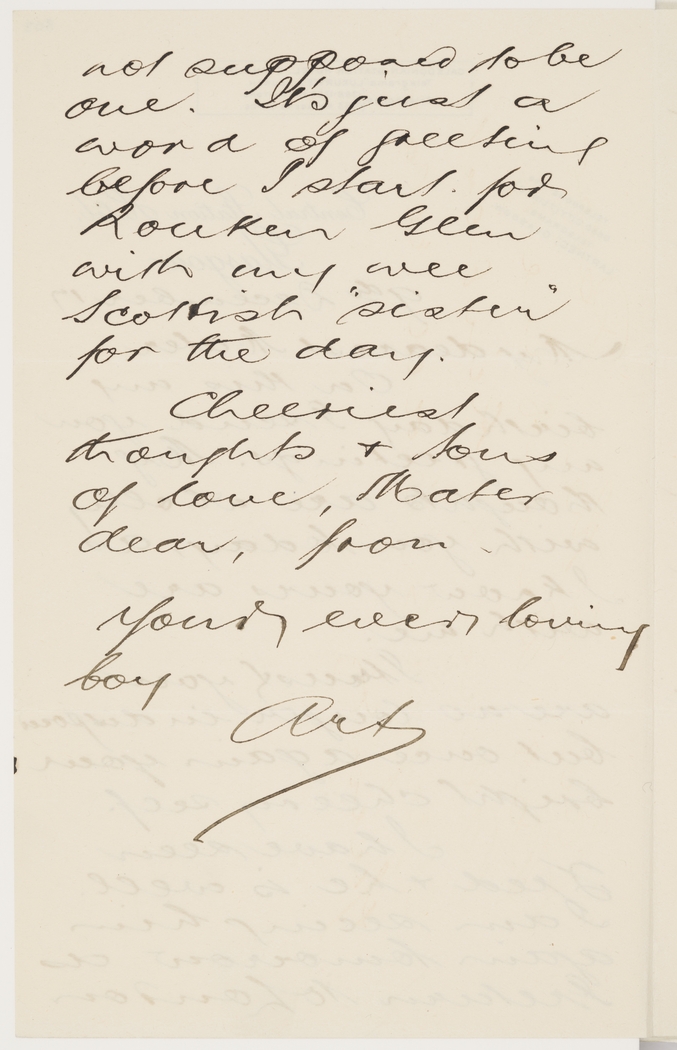 not supposed to be
one. It's just a
word of greeting
before I start for
Rouken Glen
with my wee
Scottish "sister"
for the day.
Cheeriest
thoughts + tons
of love, Mater
dear, from
Your ever loving
boy
Art